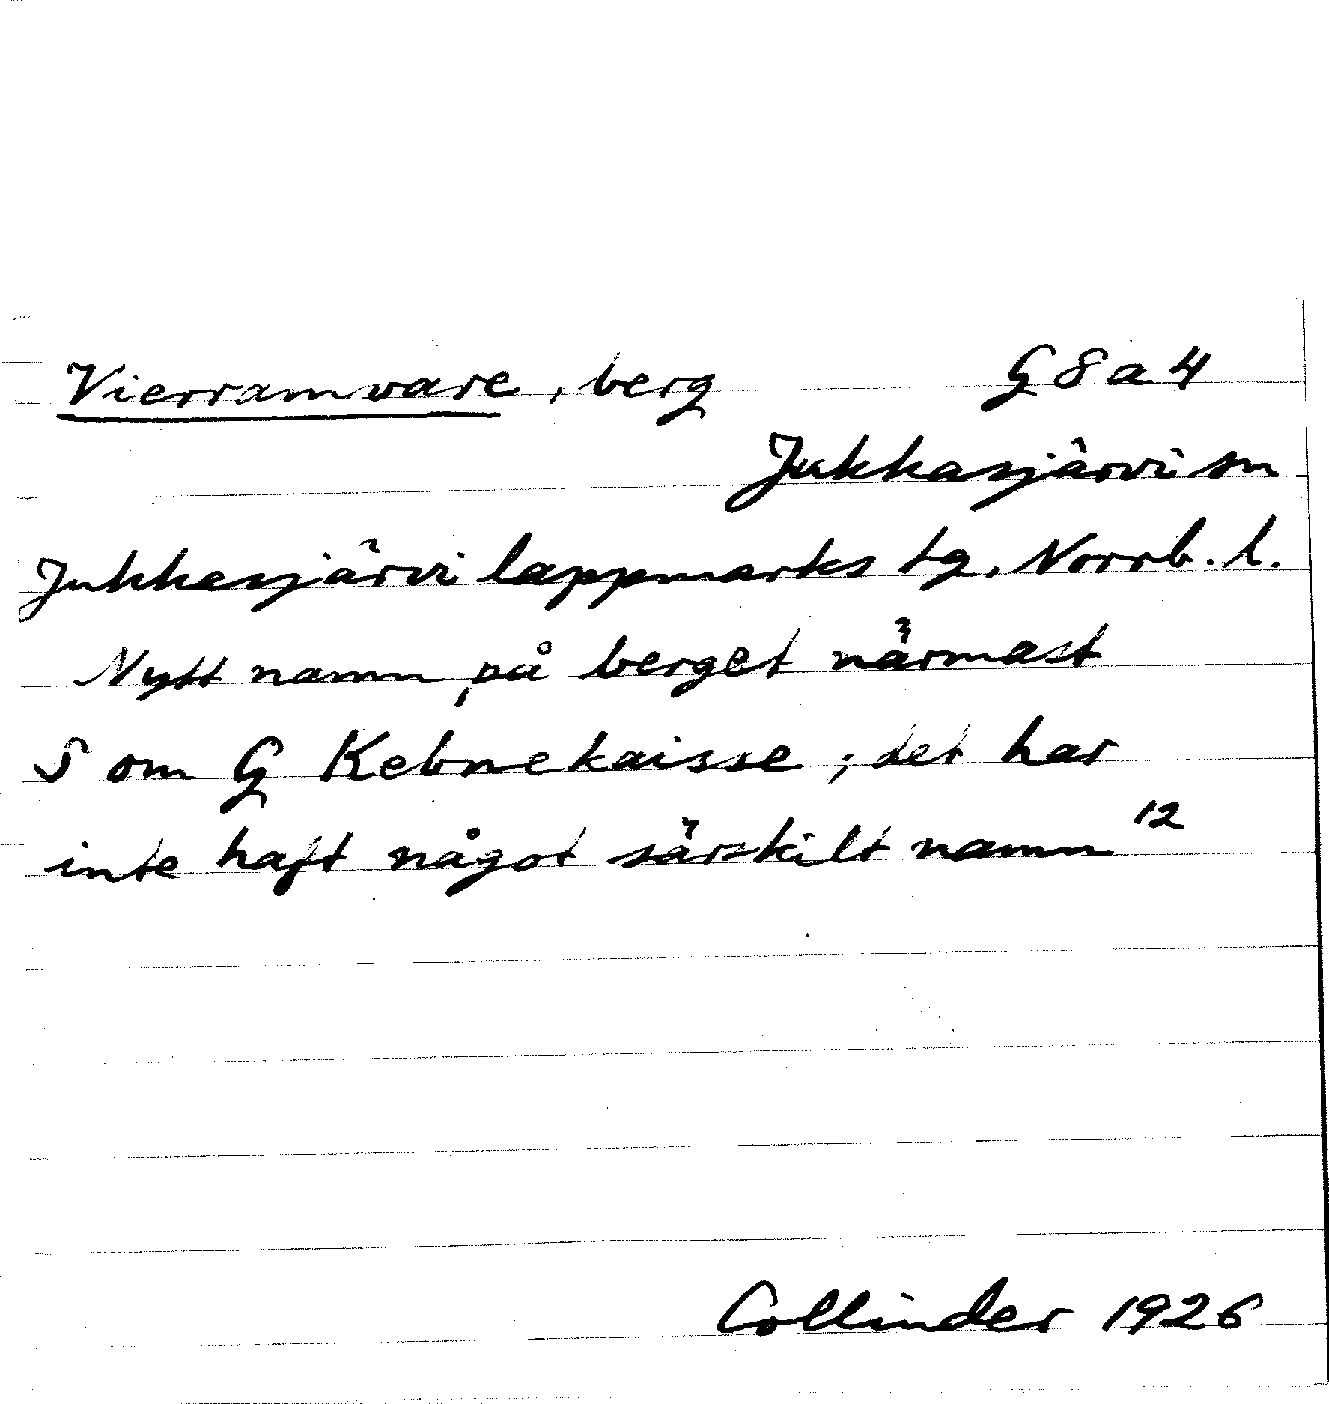 Vierramvare, berg G 8 a 4
Jukkasjärvi sn
Jukkasjärvi lappmarks tg. Norrb. l.
Nytt namn på berget närmast
S om G Kebnekaisse; det har
inte haft något särskilt namn 12
Collinder 1926